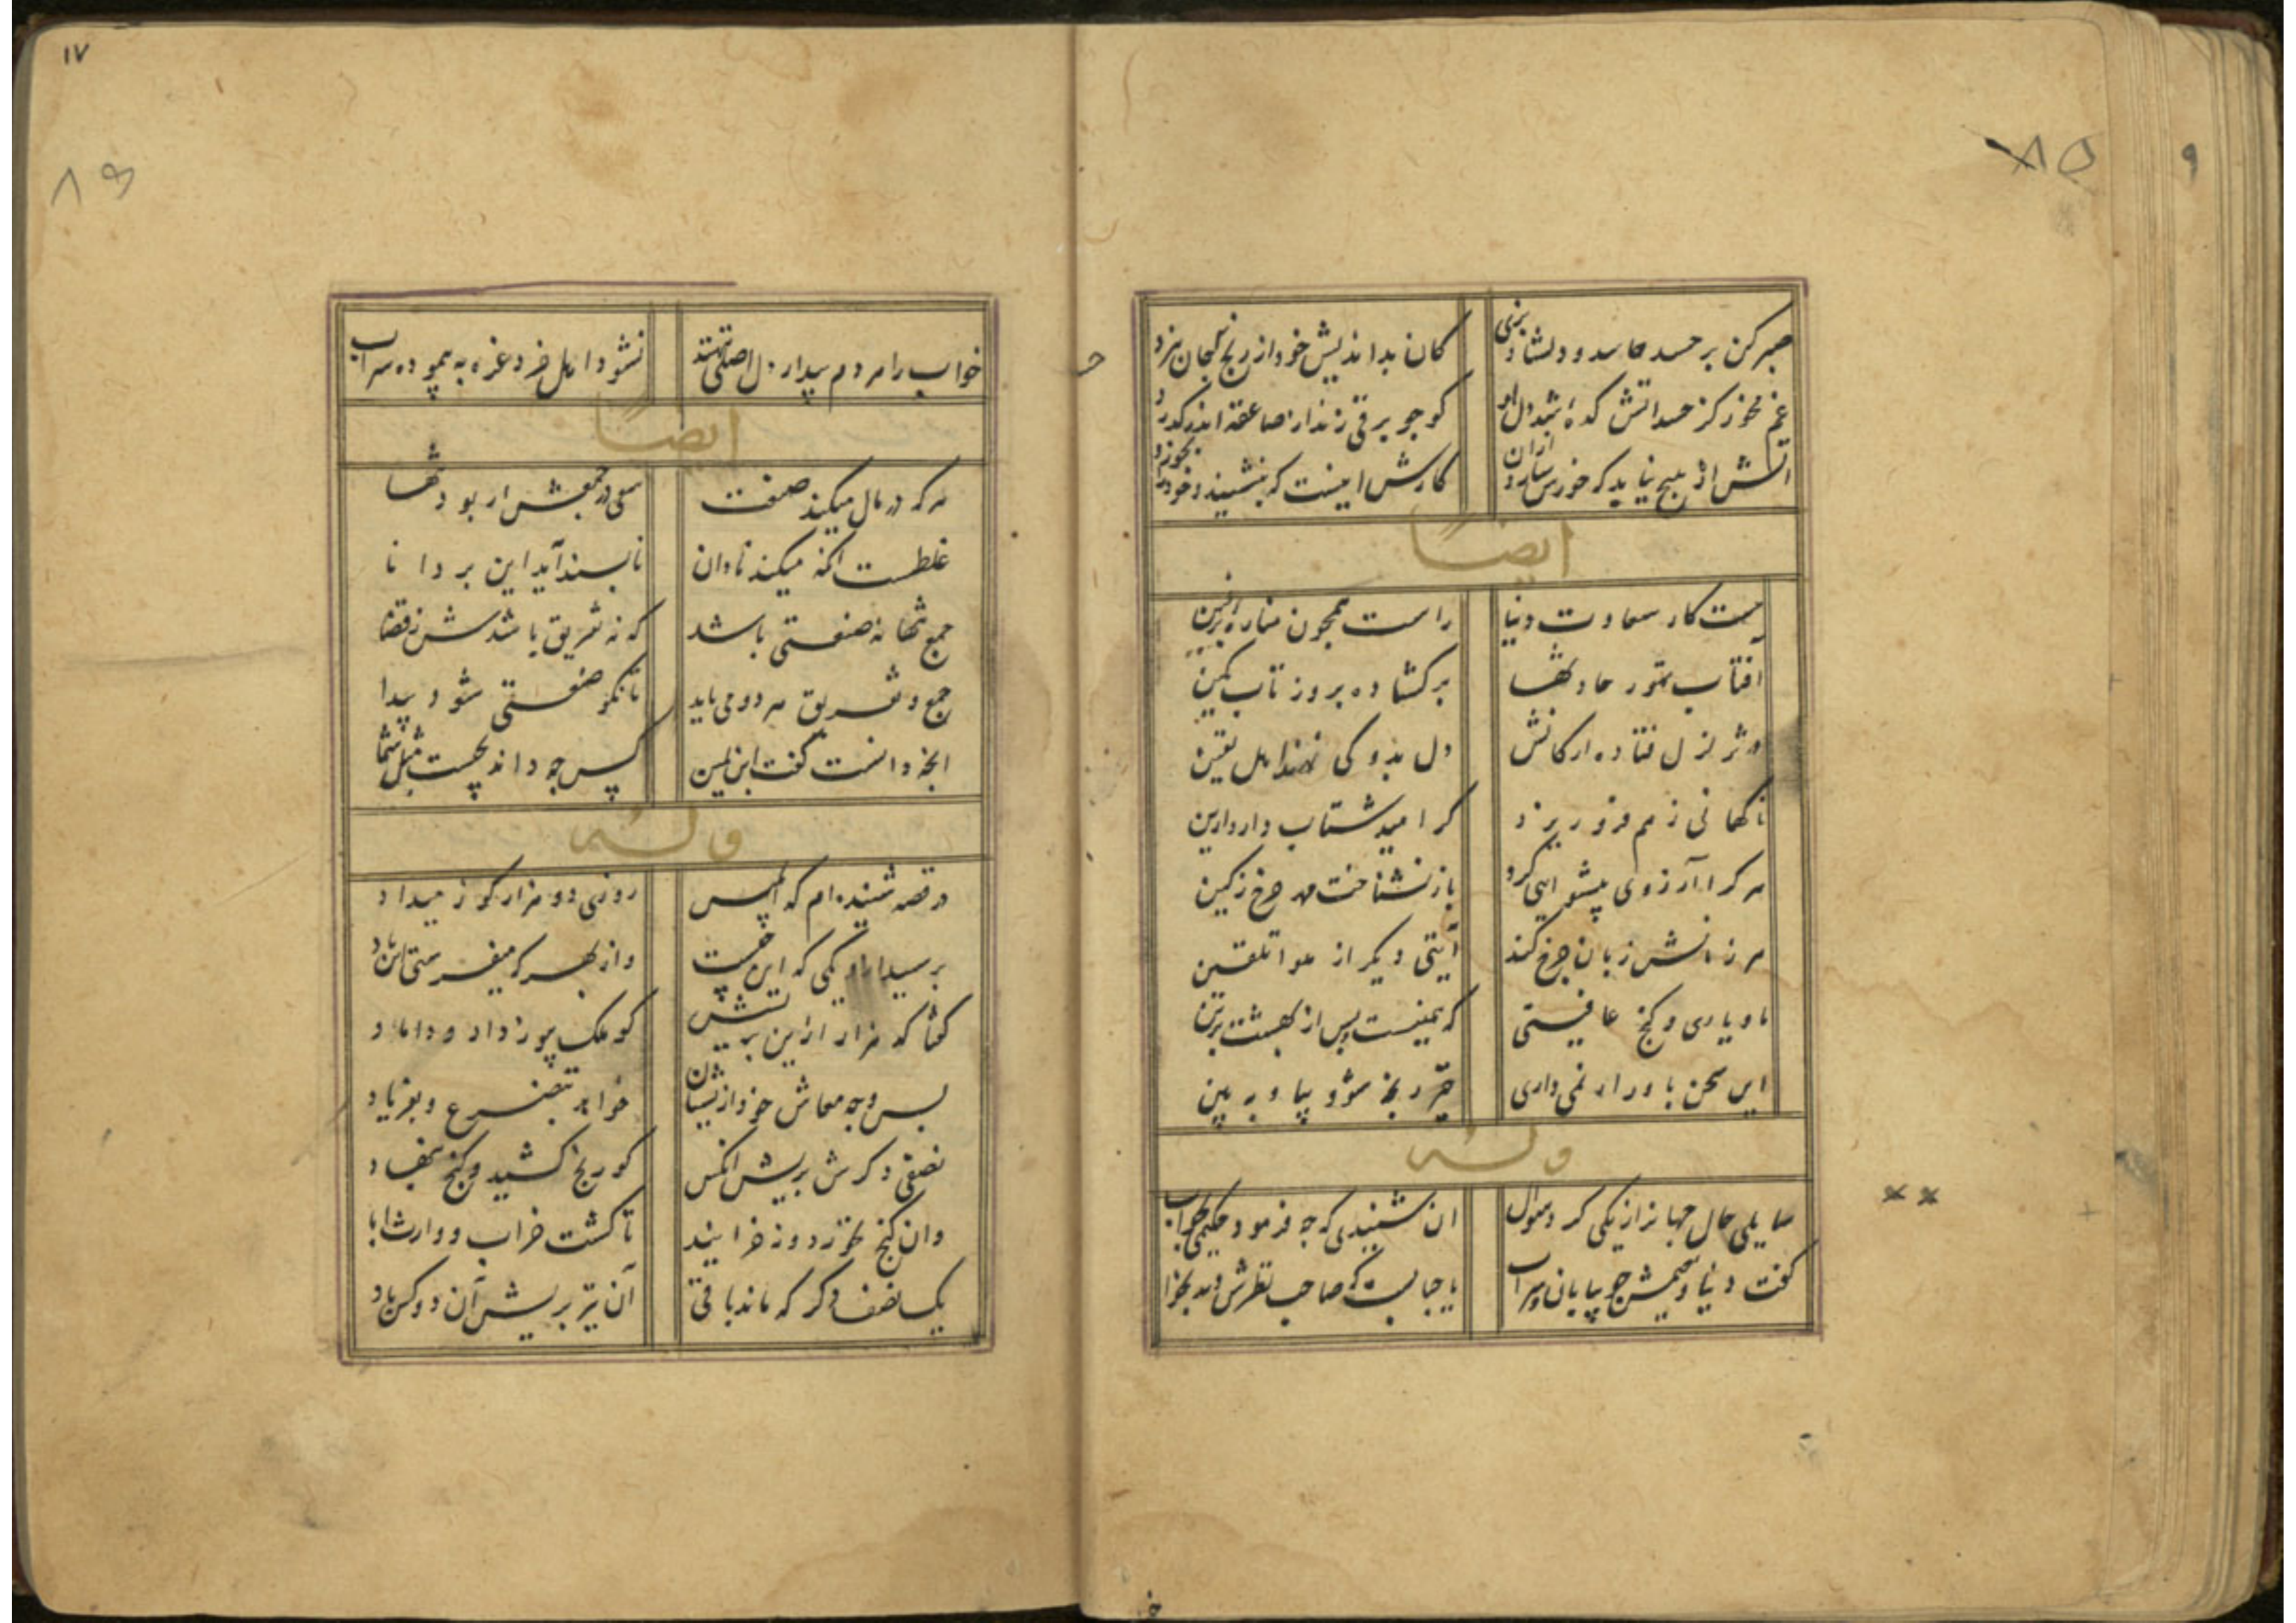 ۹
۸۵
صبر کن بر حسد حاسد و دلشاد بزی
کان بداندیش خود از رنج جان نبرد
غم مخور کز حسد آتشکده شد دل او
کو چو برقی زند از صاعقه اندر گذرد
آتش از هیچ نیابد که خورش سازد از آن
کارش اینست که بنشیند و خود را بخورد
ایضاً
هست کار سعادت دنیا
راست همچون مناره
آفتاب تموز حادثها
بر گشاده بروز تاب کمین
در تزلزل فتاده ارکانش
دل بدو کی نهند اهل یقین
ناکهانی ز هم فرو ریزد
کر امید شتاب دارد این
هر کرا آرزوی پیشوایی کرد
باز نشناخت چرخ ز کین
هر زمانش زبان چرخ کند
آیتی دیکر از تلقین
ما و یاری و کنج عافیتی
که همینست پس از بهشت برین
این سخن باور ار نمی داری
رنجه شو و بیا و ببین
وله
سایلی حال جهان را ز یکی کرد سوال
آن شنیدی که چه فرمود حکیمی بجواب
کفت دنیا و نعیمش چو بیابان و سراب
یا خیالیست که صاحب نظرش دید بخواب
۱۷
۸۶
خواب را مردم بیدار دل اصلی ننهند
نشود اهل خرد غره به پیموده سراب
ایضاً
هر که در مال میکند صنعت
سعی در جمعش ار بود تنها
غلطست آنچه میکند نادان
ناپسند آید این بر دانا
جمع تنها نه صنعتی باشد
که نه تفریق باشدش ز قفا
جمع و تفریق هر دو می باید
تا نکو صنعتی شود پیدا
آنچه دانست کفت ابن یمین
پس چه داند بچست میل شما
وله
در قصه شنیده ام که ابلیس
روزی دو هزار کوز میداد
پرسید از او یکی که این چیست
واز بهر که میفرستی این باد
کفتا که هزار از این بریش
کو ملک پور داد و داماد
پس وجه معاش خود از ایشان
خواهد بتضرع و بفریاد
نصفی دکرش بریش آنکس
کو رنج کشید و کنج بنهاد
وان کنج نخورد و نه خزانید
تا کشت خراب و وارث آباد
یک نصف دکر که ماند باقی
آن نیز بریش آن دو کس باد